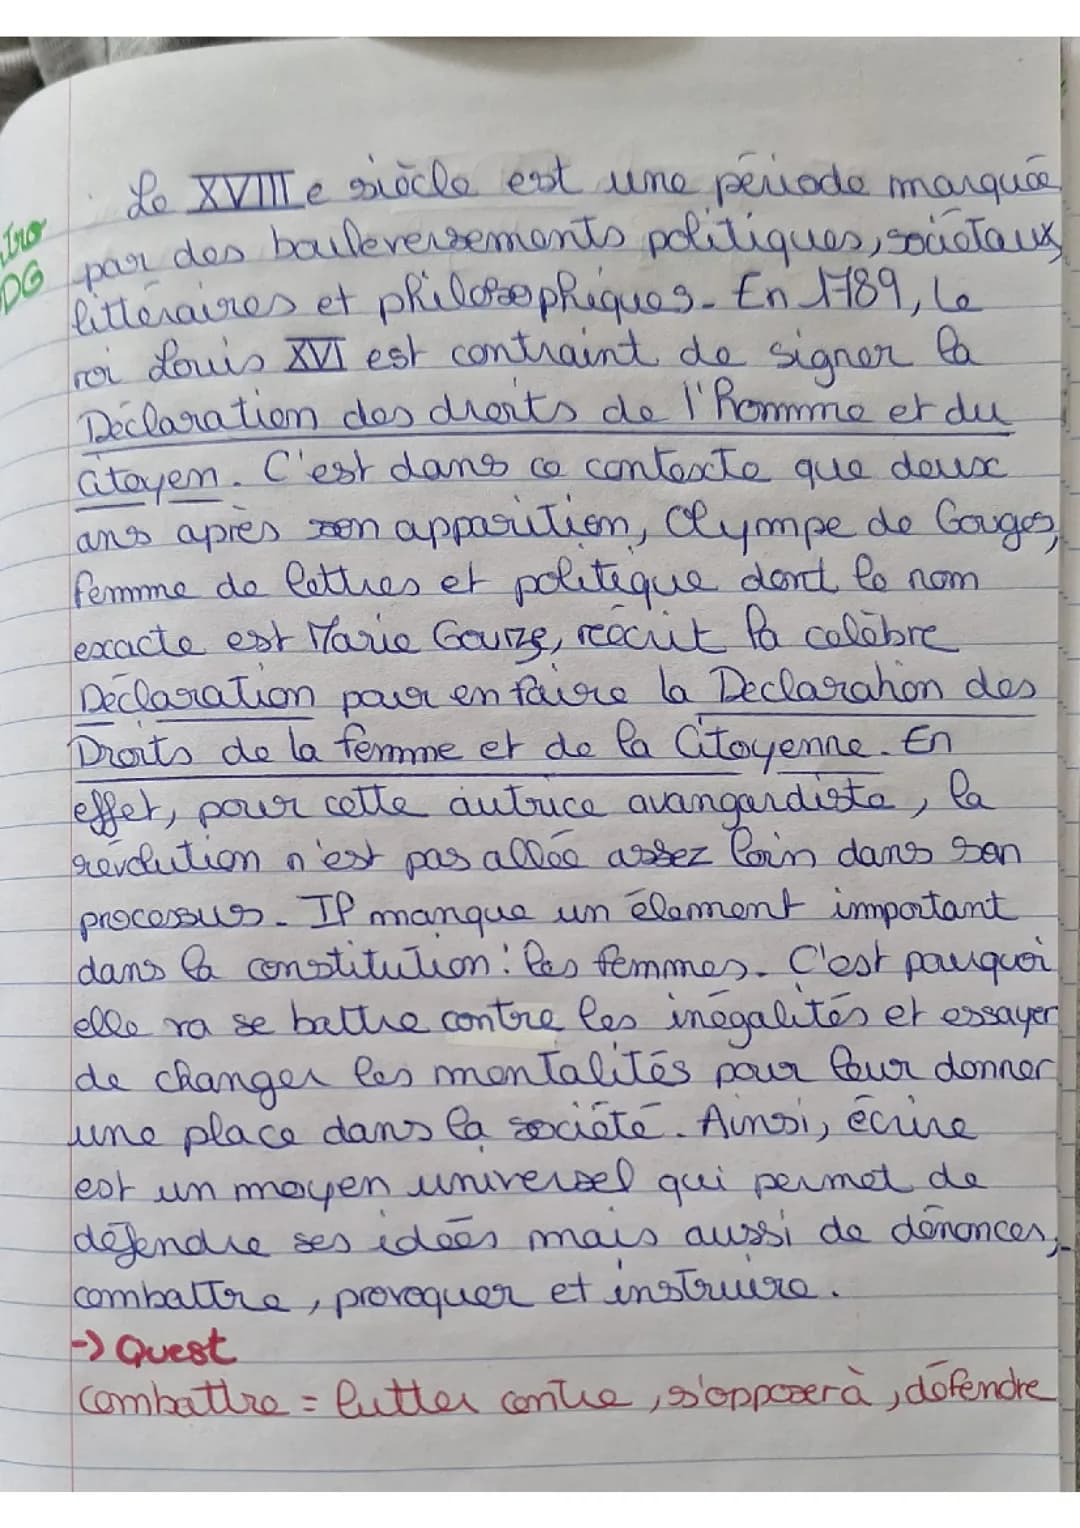 Le XVIIIe siècle est une période marquée
Intro
par des bouleversements politiques, sociétaux,
DG
littéraires et philosophiques. En 1789, le
roi Louis XVI est contraint de signer la
Déclaration des droits de l'homme et du
citoyen. C'est dans ce contexte que deux
ans après son apparition, Olympe de Gouges,
femme de lettres et politique dont le nom
exacte est Marie Gouze, réécrit la célèbre
Déclaration pour en faire la Declaration des
Droits de la femme et de la Citoyenne. En
effet, pour cette autrice avangardiste, la
révolution n'est pas allée assez loin dans son
processus. Il manque un élément important
dans la constitution : les femmes. C'est pourquoi
elle va se battre contre les inégalités et essayer
de changer les mentalités pour leur donner
une place dans la société. Ainsi, écrire
est un moyen universel qui permet de
défendre ses idées mais aussi de dénoncer,
combattre, provoquer et instruire.
-> Quest
Combattre = lutter contre, s'opposer à, défendre